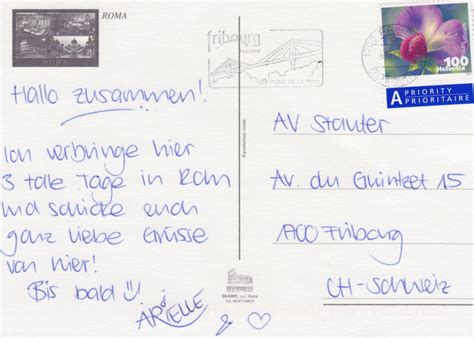 ROMA
ROMA
Hallo zusammen!
Ich verbringe hier
3 tolle Tage in Rom
und schicke euch
ganz liebe Grüsse
von hier!
Bis bald
ARIELLE
&
fribourg
PONT DE LA POYA
100
Helvetia
A PRIORITY
PRIORITAIRE
AV Stauter
Av. du Guintzet 15
1700 Fribourg
CH-Schweiz